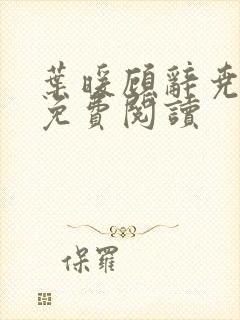 葉暖顧辭堯
免費閱讀
保羅